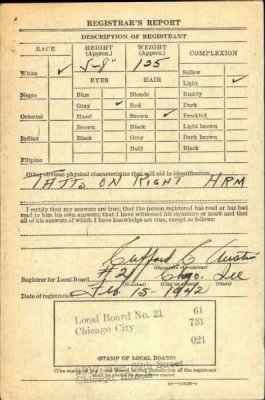 REGISTRAR'S REPORT
DESCRIPTION OF REGISTRANT
RACE HEIGHT (Approx.) WEIGHT (Approx.) COMPLEXION
White ✓ 5-8" 135 Sallow
EYES HAIR Light ✓
Negro Blue Blonde Ruddy
Gray ✓ Red Dark
Oriental Hazel Brown ✓ Freckled
Brown Black Light brown
Indian Black Gray Dark brown
Bald Black
Filipino
Other obvious physical characteristics that will aid in identification
1 ATTO ON RIGHT ARM
I certify that my answers are true; that the person registered has read or has had
read to him his own answers; that I have witnessed his signature or mark and that
all of his answers of which I have knowledge are true, except as follows:
Clifford C. Austin
(Signature of registrar)
Registrar for Local Board #21 Chgo. Ill
(Number) (City or county) (State)
Date of registration Feb 15 1942
Local Board No. 21 61
Chicago City 731
021
Street
Chicago, Illinois
(STAMP OF LOCAL BOARD)
(The stamp of the Local Board having jurisdiction of the registrant
shall be placed in the above space.)